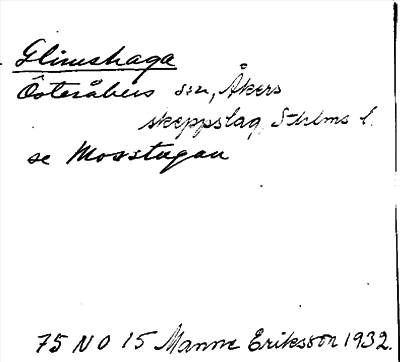 Glimshaga
Österåkers sn, Åkers
skeppslag, Sthlms l.
se Mosstugan
75 NO 15 Manne Eriksson 1932.